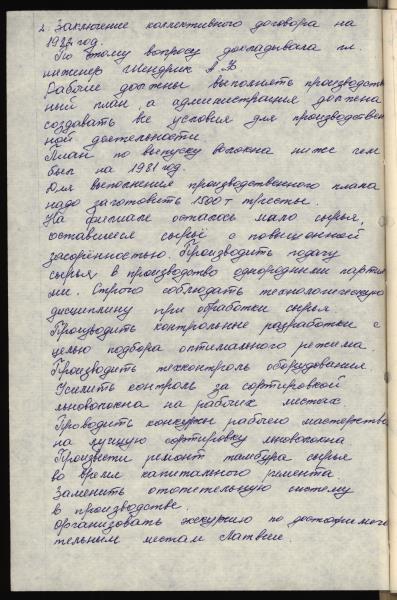 2. Заключение коллективного договора на
1982 год.
По этому вопросу докладывала гл.
инженер Шендрик А.В
Рабочие должны выполнять производствен
ный план, а администрация должна
создавать все условия для производствен
ной деятельности.
План по выпуску волокна ниже чем
был на 1981 год.
Для выполнения производственного плана
надо заготовить 1500 т тресты.
На филиале осталось мало сырья,
оставшееся сырьё с повышенной
засорённостью. Производить подачу
сырья в производство однородными партия
ми. Строго соблюдать технологическую
дисциплину при обработки сырья
Производить контрольные разработки с
целью подбора оптимального режима.
Производить техконтроль оборудования.
Усилить контроль за сортировкой
льноволокна на рабочих местах
Проводить конкурсы рабочего мастерства
на лучшую сортировку льноволокна
Произвести ремонт тамбура сырья
во время капитального ремонта
Заменить отопительную систему
в производстве.
Организовать экскурсию по достопримеча
тельным местам Латвии.